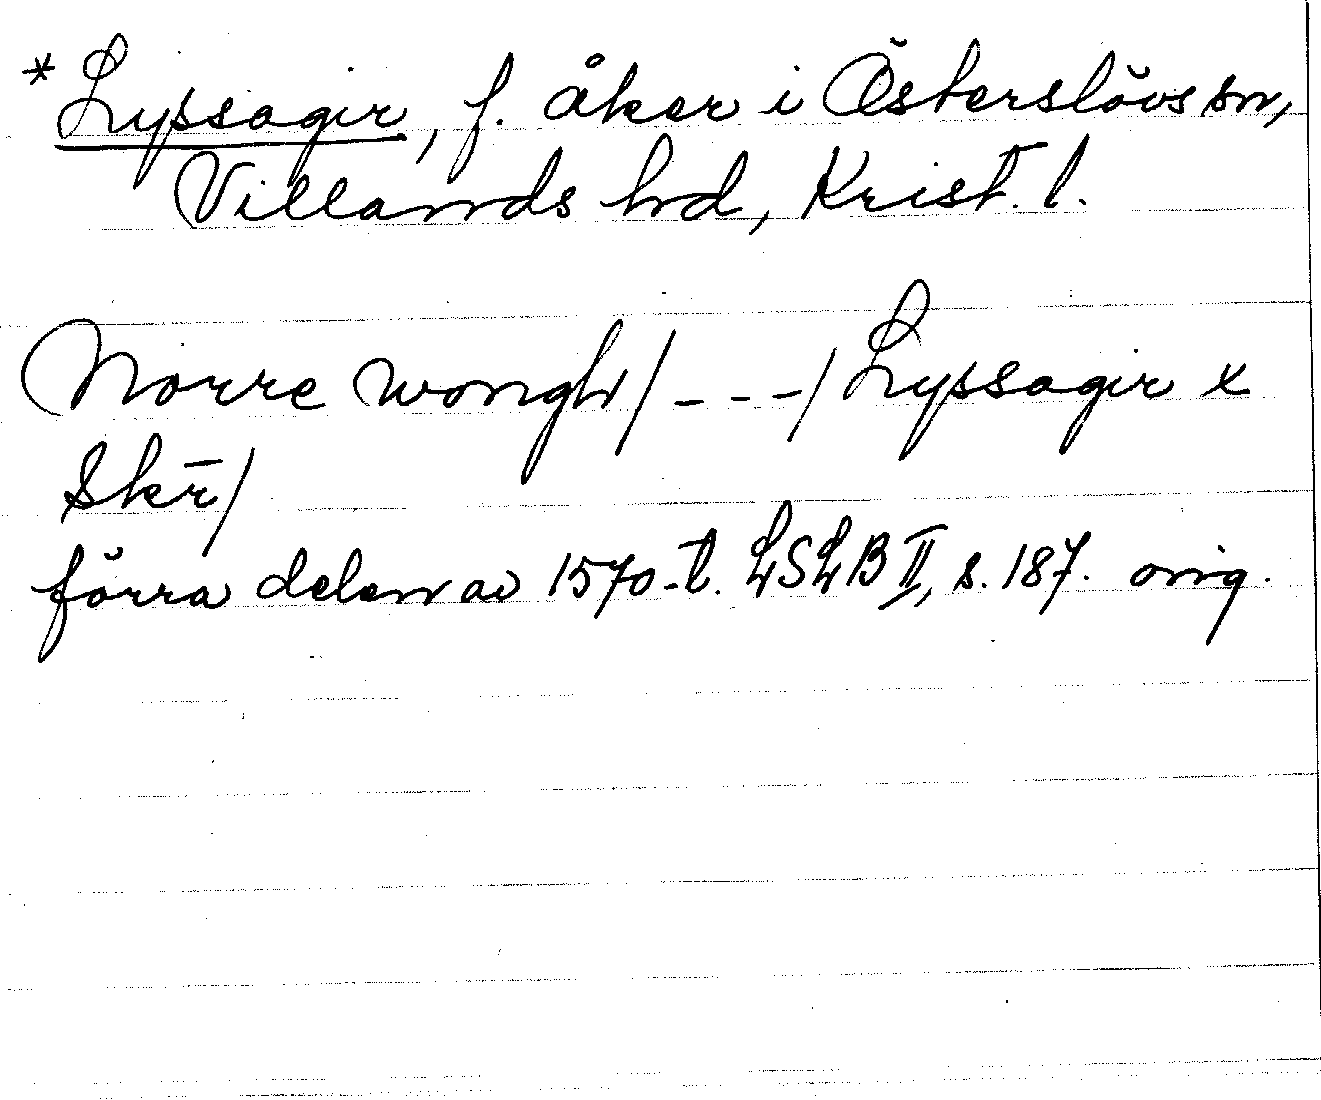 *Lyssagir, f. åker i Österslövs sn,
Villands hd, Krist. l.
Norre wongh/ - - -/ Lyssagir x
Skr̄/
förra delen av 1570-t. LSLB II, s. 187. orig.